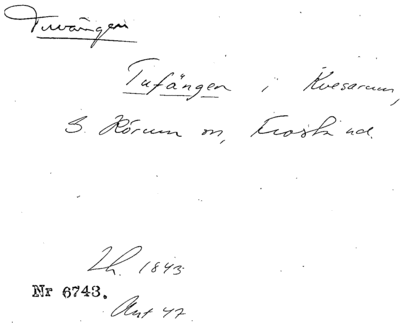 Tuvängen
Tufängen i Kvesarum,
S. Rörum sn, Frosta hd.
Lh. 1843
Nr 6743.
Ant 47